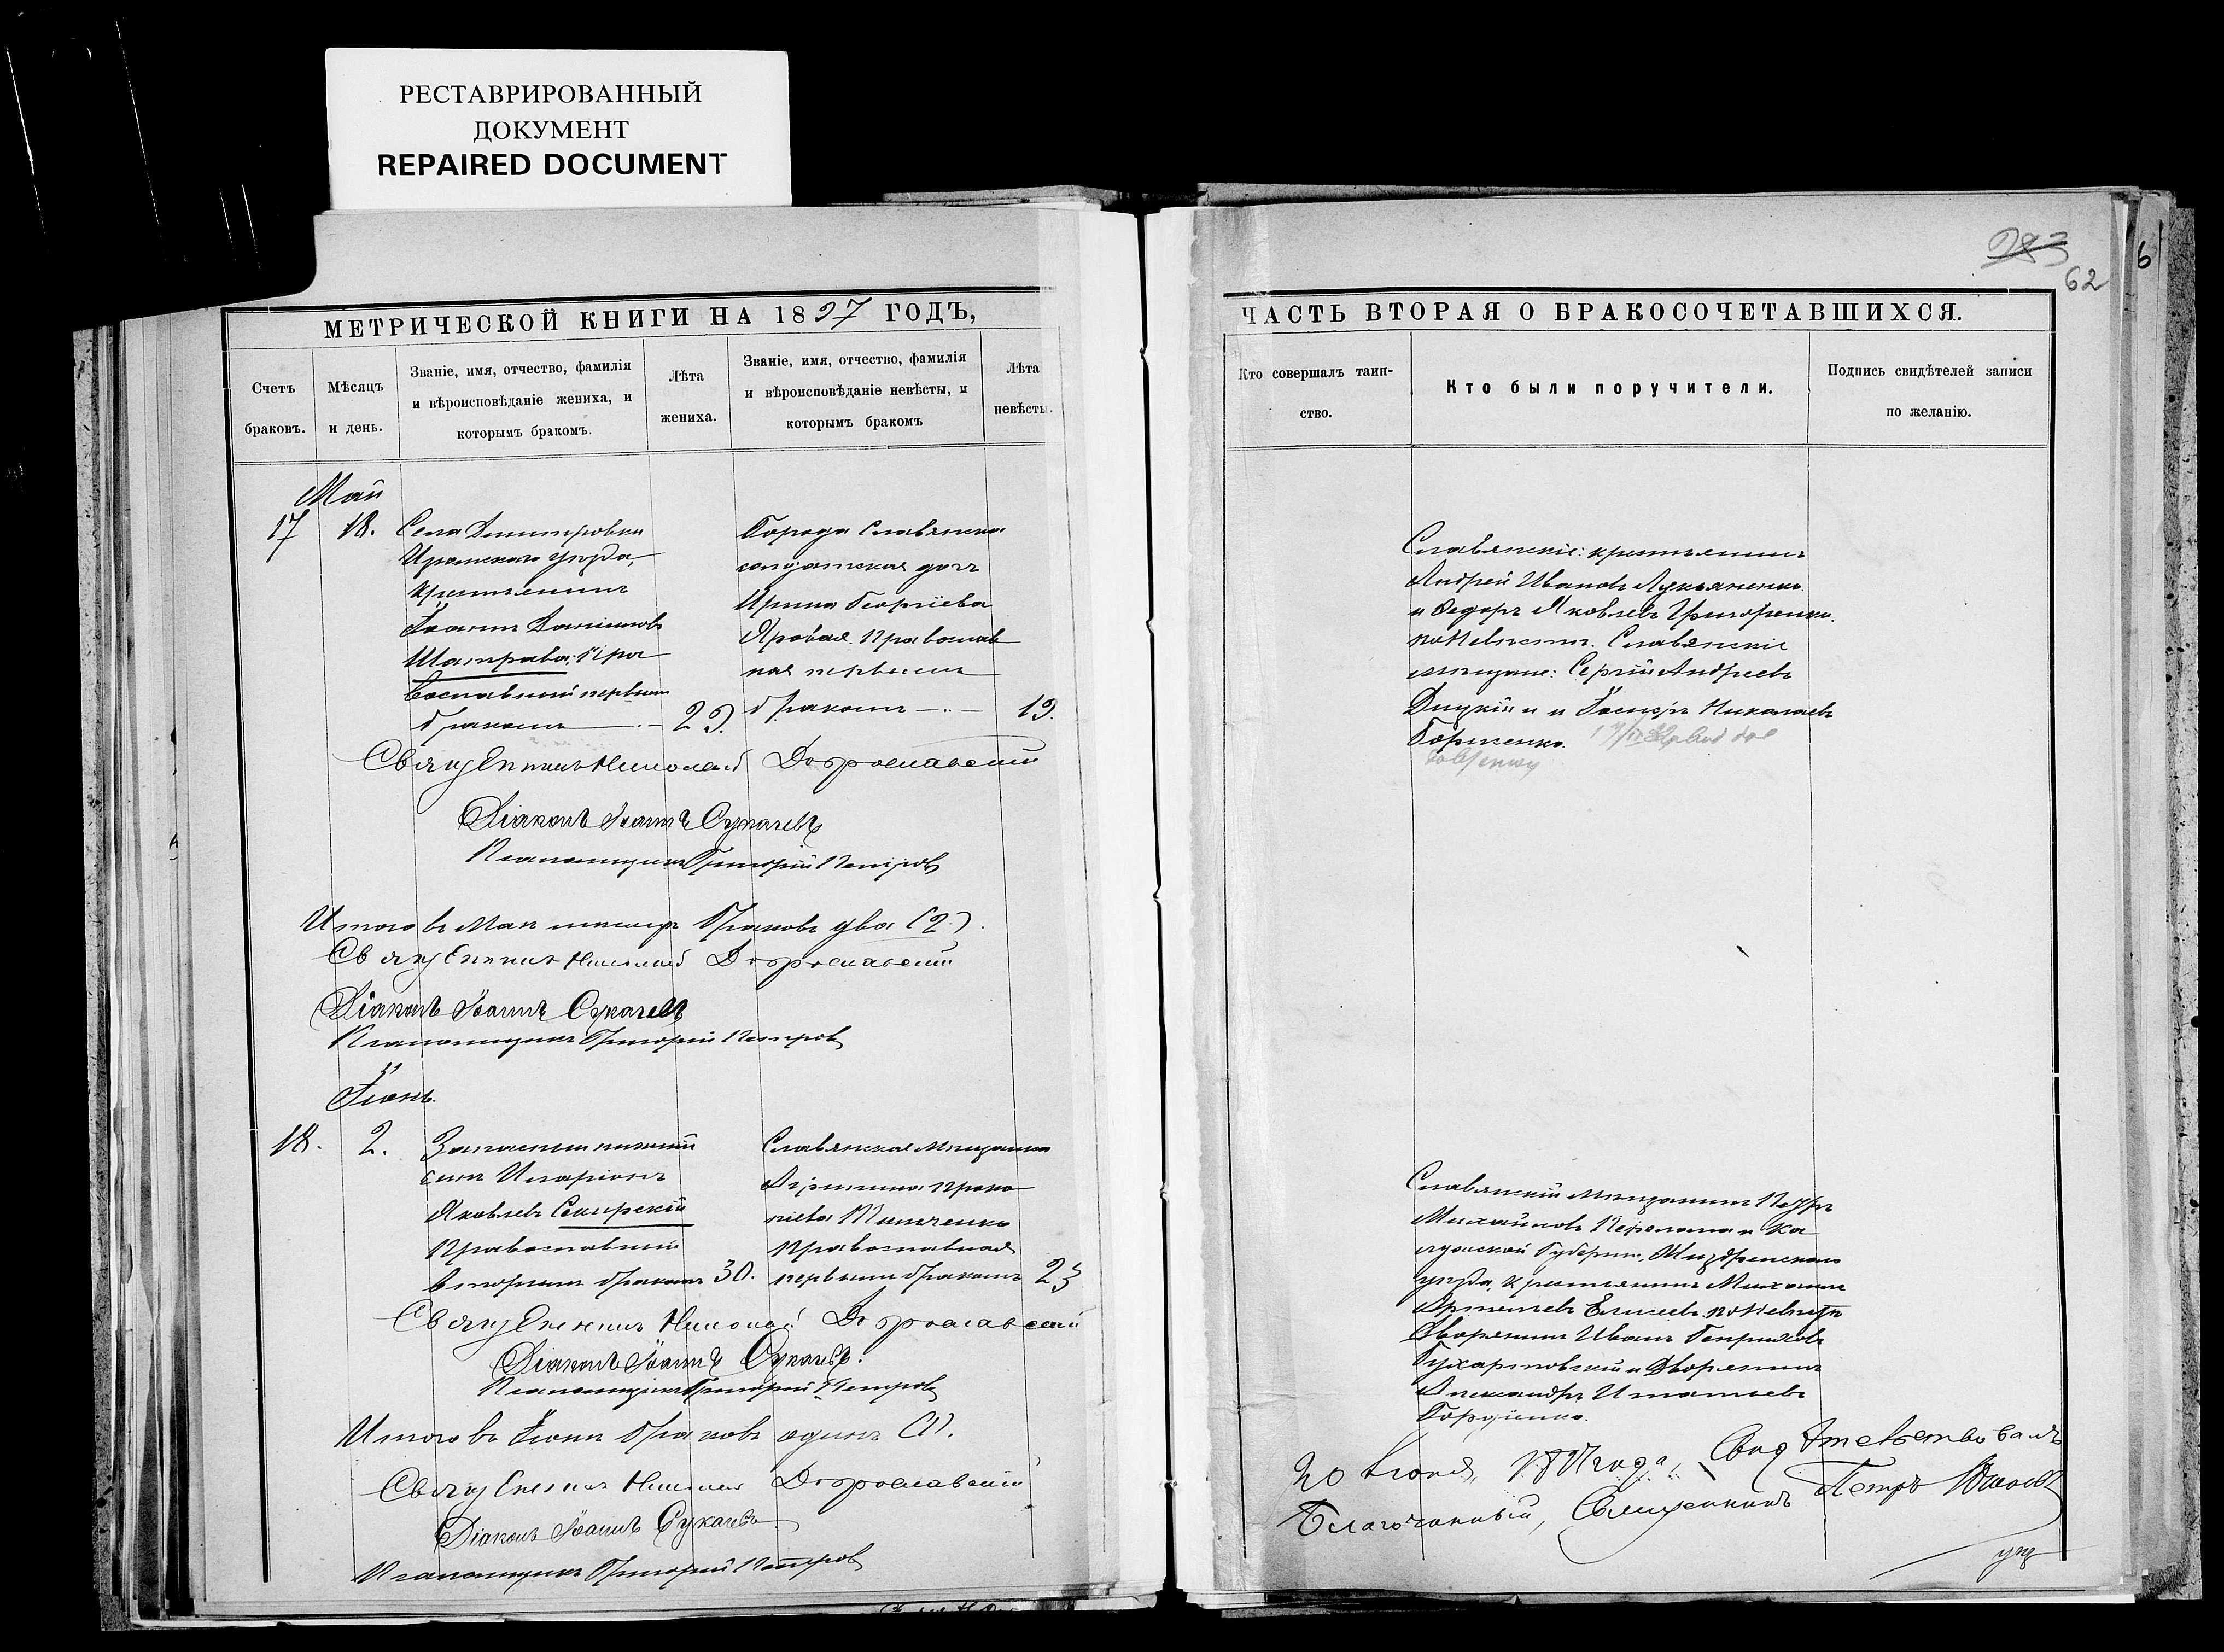 РЕСТАВРИРОВАННЫЙ
ДОКУМЕНТ
REPAIRED DOCUMENT
МЕТРИЧЕСКОЙ КНИГИ НА 1897 ГОДЪ,
Счетъ
браковъ.
Мѣсяцъ
и день.
Званіе, имя, отчество, фамилія
и вѣроисповѣданіе жениха, и
которымъ бракомъ.
Лѣта
жениха.
Званіе, имя, отчество, фамилія
и вѣроисповѣданіе невѣсты, и
которымъ бракомъ
Лѣта
невѣсты.
Май
17
18.
Села Дмитровки
Изюмскаго уѣзда,
крестьянинъ
Іоаннъ Даниловъ
Шатравка, Пра
вославный первымъ
бракомъ
29.
Города Славянска
солдатская дочь
Ирина Георгіева
Яровая Православ
ная первымъ
бракомъ
19.
Священникъ Николай Доброславскій
Діаконъ Іоаннъ Сукачевъ
Псаломщикъ Григорій Петровъ
Итого въ Маѣ мѣсяцѣ браковъ два (2).
Священникъ Николай Доброславскій
Діаконъ Іоаннъ Сукачевъ
Псаломщикъ Григорій Петровъ
Іюнь.
18.
2.
Запасный нижній
чинъ Иларіонъ
Яковлевъ Семирскій
Православный
вторымъ бракомъ
30.
Славянская мѣщанка
Агрипина Проко
піева
Православная
первымъ бракомъ
23
Священникъ Николай Доброславскій
Діаконъ Іоаннъ Сукачевъ.
Псаломщикъ Григорій Петровъ
Итого въ Іюнѣ браковъ одинъ (1).
Священникъ Николай Доброславскій
Діаконъ Іоаннъ Сукачевъ
Псаломщикъ Григорій Петровъ
283
62
6
ЧАСТЬ ВТОРАЯ О БРАКОСОЧЕТАВШИХСЯ.
Кто совершалъ таин-
ство.
Кто были поручители.
Подпись свидѣтелей записи
по желанію.
Славянскіе: крестьянинъ
Андрей Ивановъ Лукьяненко
и Ѳедоръ Яковлевъ Григоренко.
по невѣстѣ. Славянскіе
мѣщане: Сергій Андреевъ
Дицкій и Іосифъ Николаевъ
Борисенко.
Славянскій мѣщанинъ Петръ
Михайловъ и Ка
лужской Губерніи, Жиздринскаго
уѣзда, крестьянинъ Михаилъ
Артемьевъ Елисеевъ по невѣстѣ
Дворянинъ Иванъ Генриховъ
и Дворянинъ
Александръ Игнатьевъ
Гордіенко.
20 Іюня, 1897 года, Свидѣтельствовалъ
Благочинный, Священникъ Петръ